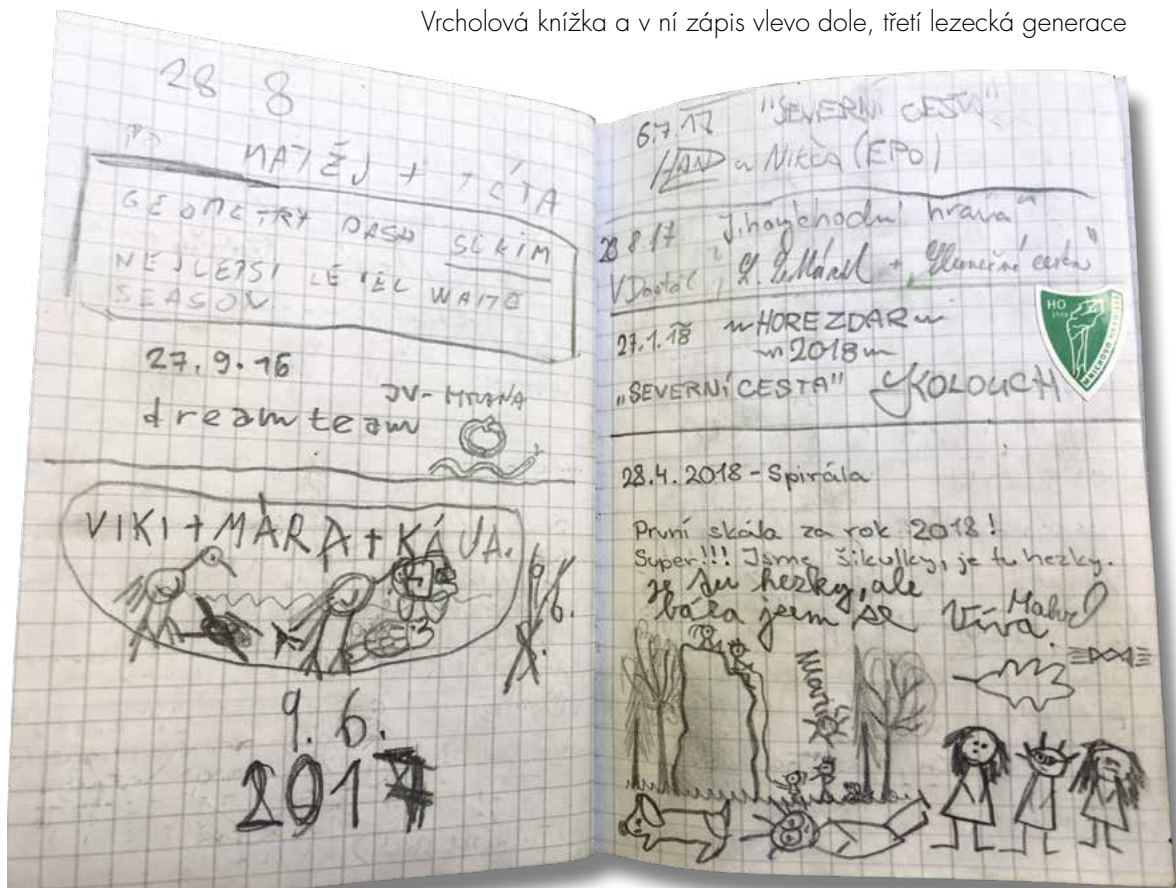 Vrcholová knížka a v ní zápis vlevo dole, třetí lezecká generace
28 8
MATĚJ + TÁTA
GEOMETRY DASH
NEJLEPSI LEVEL
SEASON
27.9.16
JV-HRANA
dreamteam
VIKI + MÁRA + KÁVA.
9.6.
9.6.
2017
6.7.17 "SEVERNÍ CESTA"
HAN a Nikča (EPO)
28 8 17 Jihovýchodní hrana"
V Dostál
27.1.18 HORE ZDAR
2018
„SEVERNÍ CESTA" KOLOUCH
HO
28.4.2018 - Spirála
První skála za rok 2018!
Super!!! Jsme šikulky, je tu hezky.
je tu hezky, ale
bála jsem se